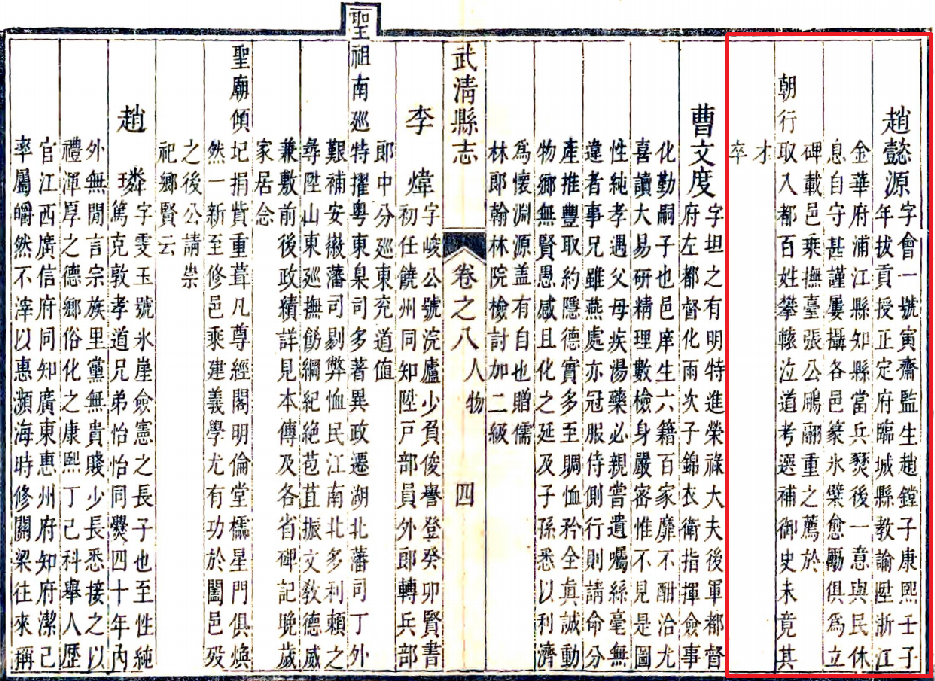 趙懿源字會一號寅齋監生趙鏜子康熙壬子
年拔貢授正定府臨城縣教諭陞浙江
金華府浦江縣知縣當兵燹後一意與民休
息自守甚謹屢攝各邑篆氷檗愈勵俱為立
碑載邑乘撫臺張公鵬翮重之薦於
朝行取入都百姓攀轅泣道考選補御史未竟其
才
卒
曹文度字坦之有明特進榮祿大夫後軍都督
府左都督化雨次子錦衣衛指揮僉事
化勤嗣子也邑庠生六籍百家靡不酣洽尤
喜讀大易研精理數檢身嚴密惟不見是圖
性純孝遇父母疾湯藥必親嘗遺囑絲毫無
違者事兄雖燕處亦冠服侍側行則請命分
產推豐取約隱德實多至賙恤矜全真誠動
物鄉無賢愚感且化之延及子孫悉以利濟
為懷淵源蓋有自也贈儒
林郎翰林院檢討加二級
武清縣志 卷之八 人物 四
李煒字峻公號浣廬少負俊譽登癸卯賢書
初任饒州同知陞戶部員外郎轉兵部
郎中分巡東兗道值
聖祖南巡特擢粵東臬司多著異政遷湖北藩司丁外
艱補安徽藩司剔弊恤民江南北多利賴之
尋陞山東巡撫飭綱紀絕苞苴振文教德威
兼敷前後政績詳見本傳及各省碑記晚歲
家居念
聖廟傾圮捐貲重葺凡尊經閣明倫堂櫺星門俱煥
然一新至修邑乘建義學尤有功於闔邑歿
之後公請崇
祀鄉賢云
趙璘字雯玉號氷崖僉憲之長子也至性純
篤克敦孝道兄弟怡怡同爨四十年內
外無閒言宗族里黨無貴賤少長悉接之以
禮渾厚之德鄉俗化之康熙丁己科舉人歷
官江西廣信府同知廣東惠州府知府潔己
率屬皭然不滓以惠瀕海時修關梁往來稱